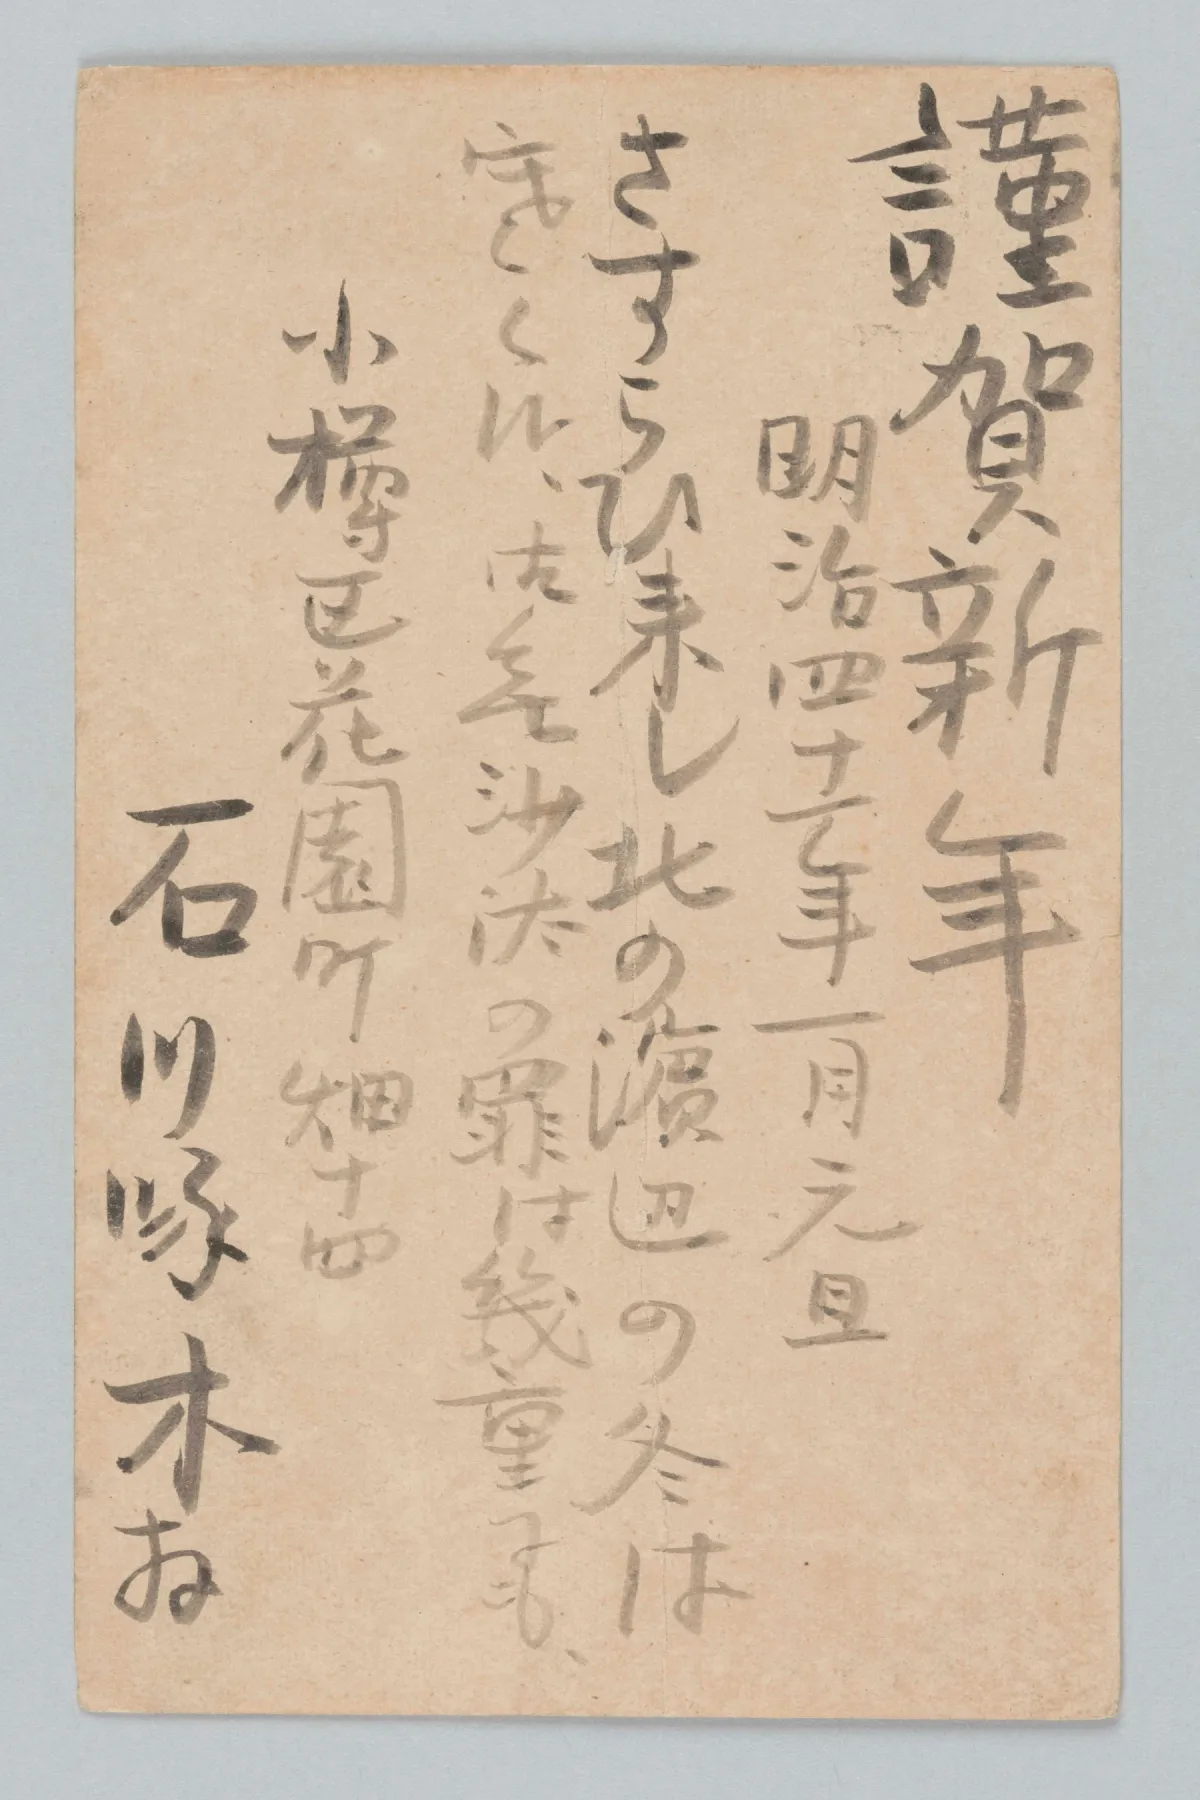 謹賀新年
明治四十一年一月元旦
さすらひ来し北の濱辺の冬は
寒く候、御無沙汰の罪は幾重にも、
小樽区花園町畑十四
石川啄木拝